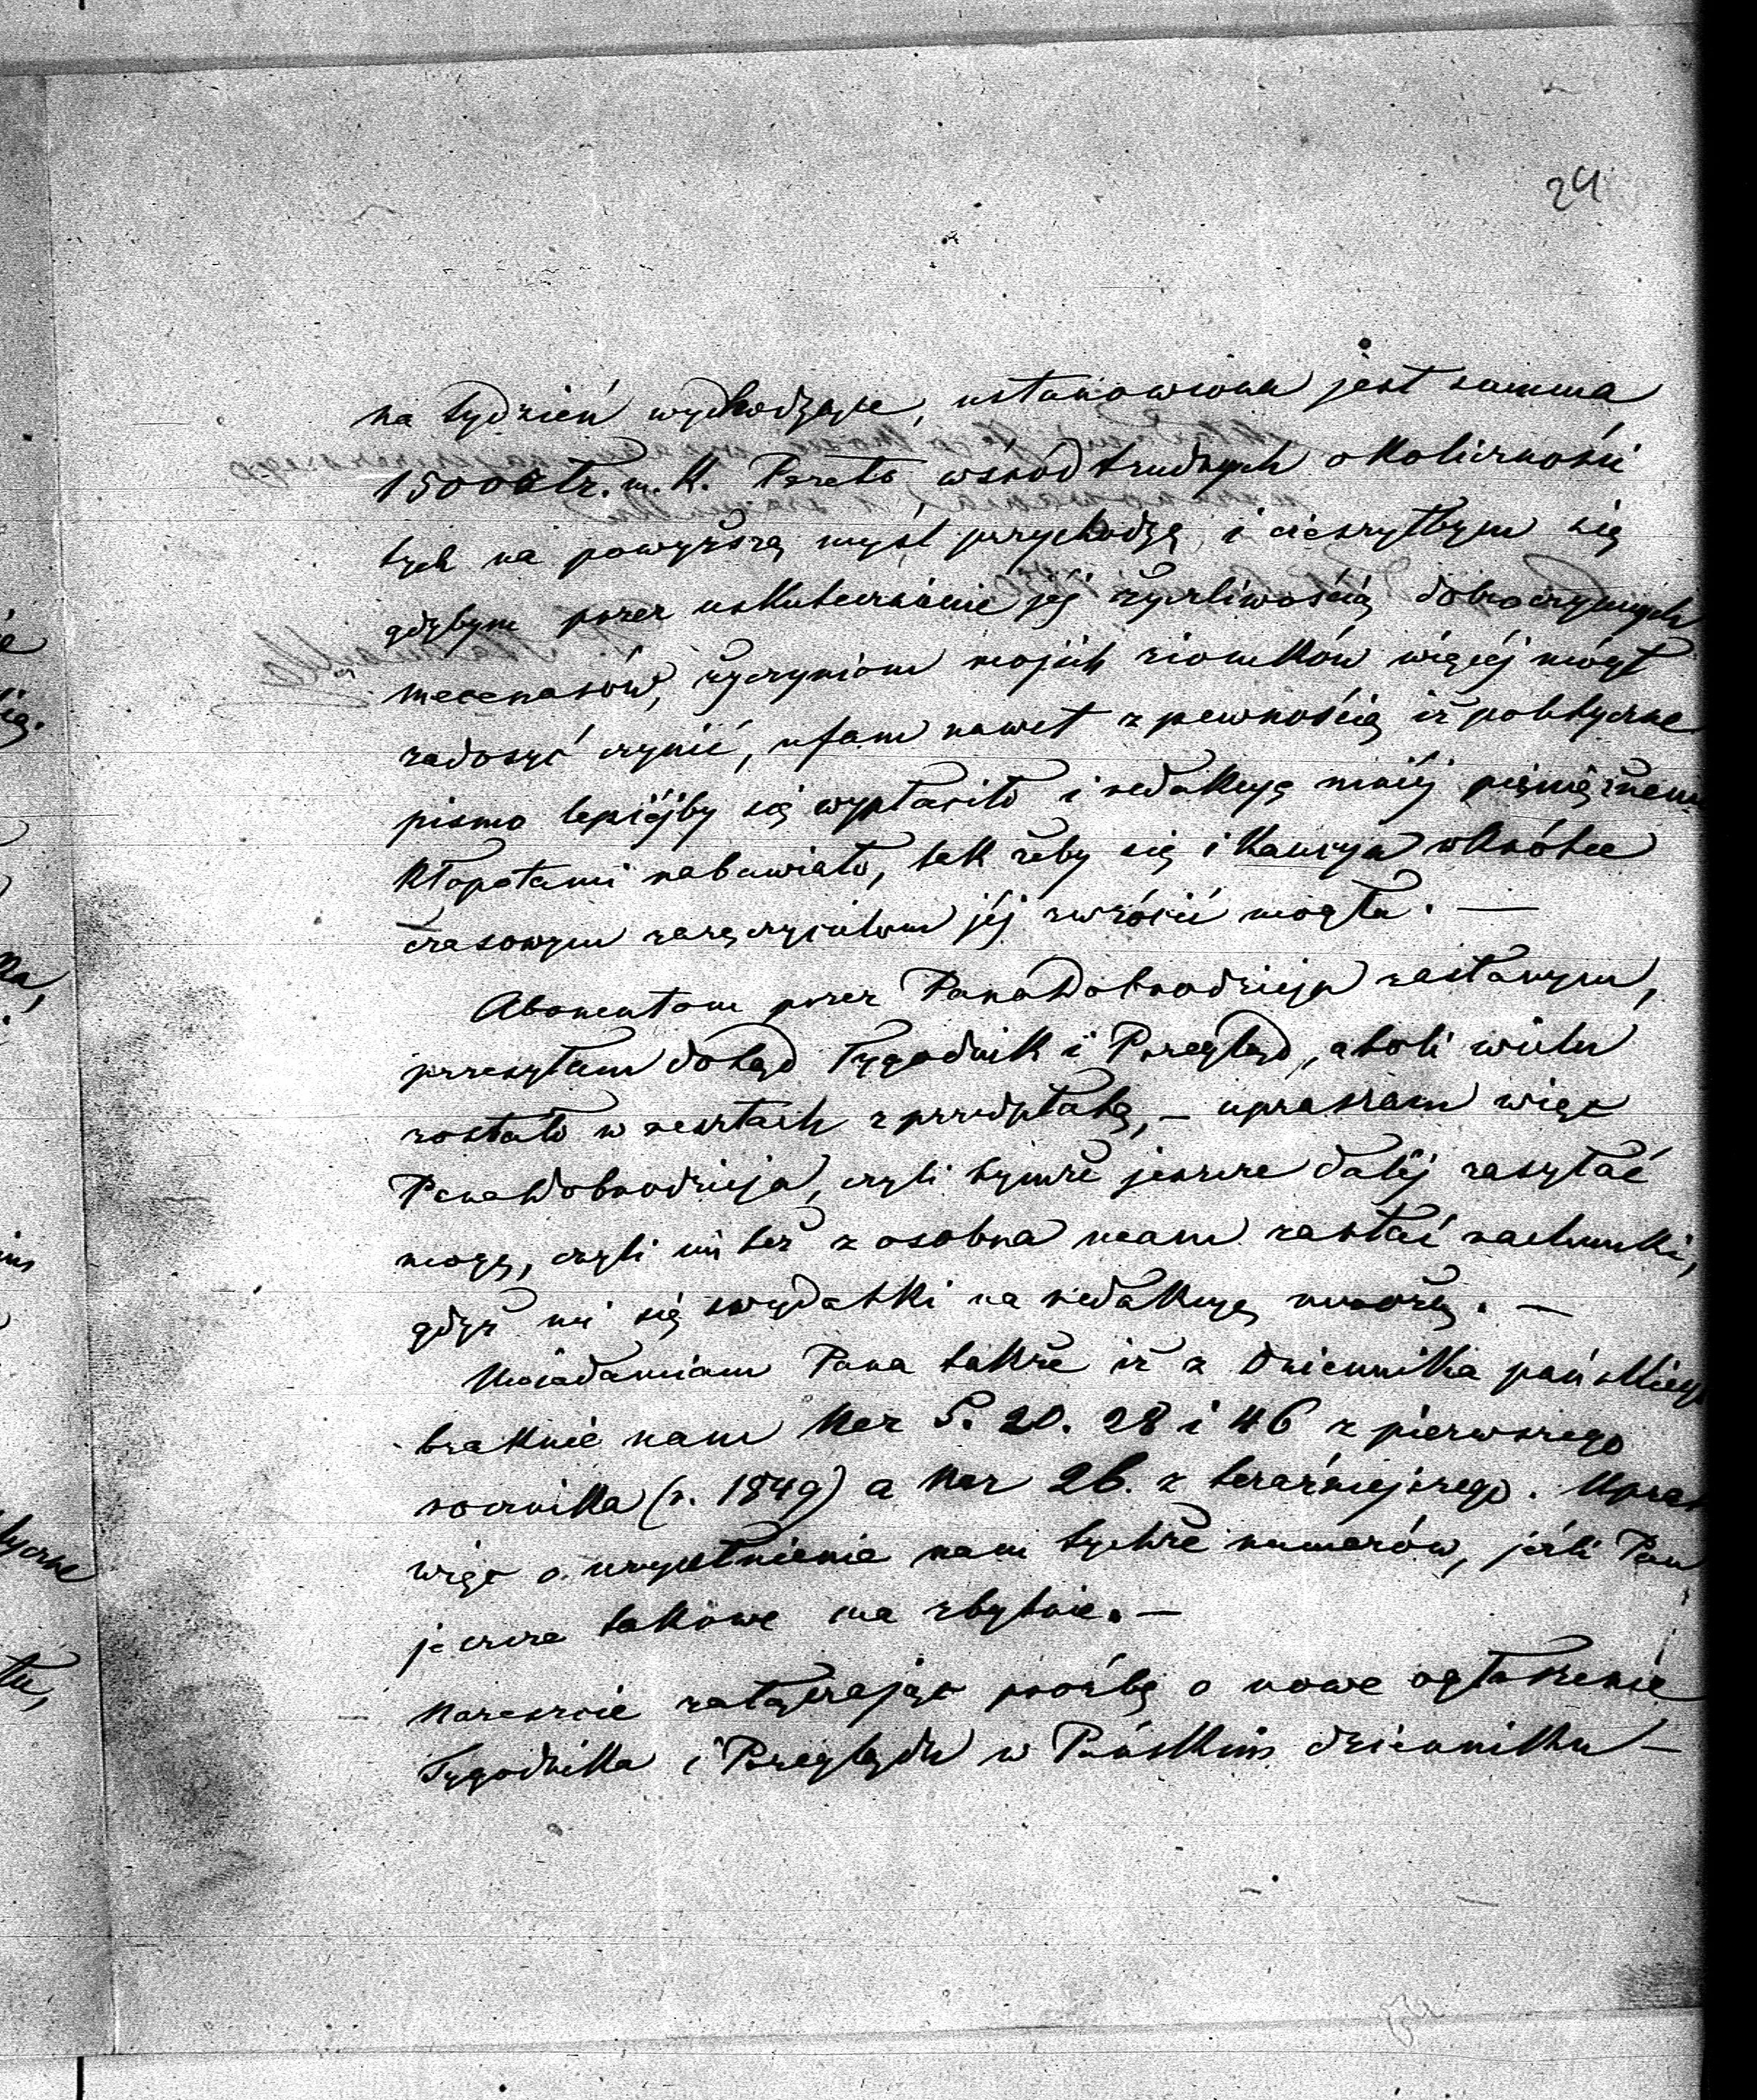 24
na tydzień wychodzące, ustanowiona jest summa
1500 złr. m. K. Przeto wśród trudnych okoliczności
tych na powyższą myśl przychodzę, i cieszyłbym się
gdybym przez uskutecznienie jéj życzliwością dobroczynnych
mecenasów, życzyniom mojich ziomków więcéj mógł
zadosyć czynić, ufam nawet z pewnością iż polityczne
pismo lepiéjby się wypłaciło i redakcyę mniéj pieniężnemi
kłopotami nabawiało, tak żeby się i kaucya wkrótce
czasowym zaręczycielom jéj zwrócić mogła. —
Abonentom przez Pana Dobrodzieja zasłanym,
przesyłam dotąd Tygodnik i Przegląd, atoli wielu
zostało w resztach z przedpłatą, — upraszam więc
Pana Dobrodzieja, czyli tymże jeszcze daléj zasyłać
mogę, czyli im też z osobna mam zasłać rachunki,
gdyż mi się wydatki na redakcyę mnożą. —
Uwiadamiam Pana także iż z Dziennika pańskiego
braknie nam Ner 5. 20. 28 i 46 z pierwszego
rocznika (r. 1849) a Ner 26. z teraźniejszego. Uprasz
więc o uzupełnienie nam tychże numerów, jeśli Pan
jeszcze takowe ma zbytnie. —
Nareszcie załączając prośbę o nowe ogłoszenie
Tygodnika i Przeglądu w Pańskim dzienniku —